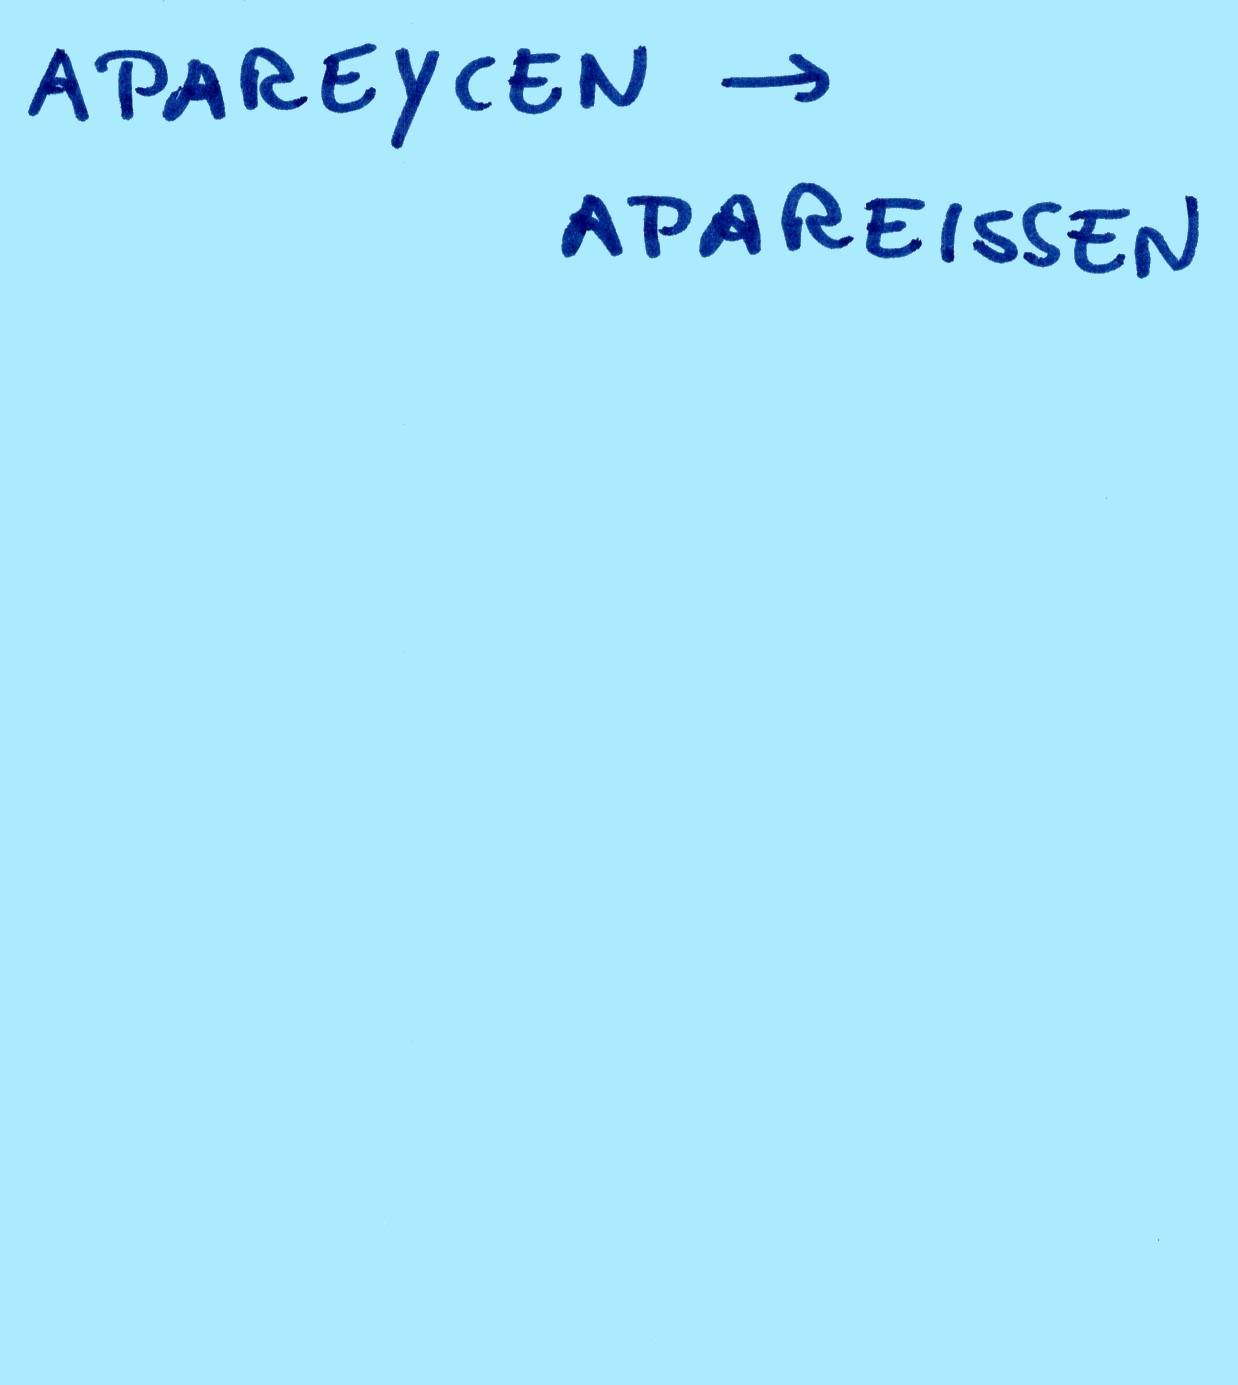 APAREYCEN →
APAREISSEN